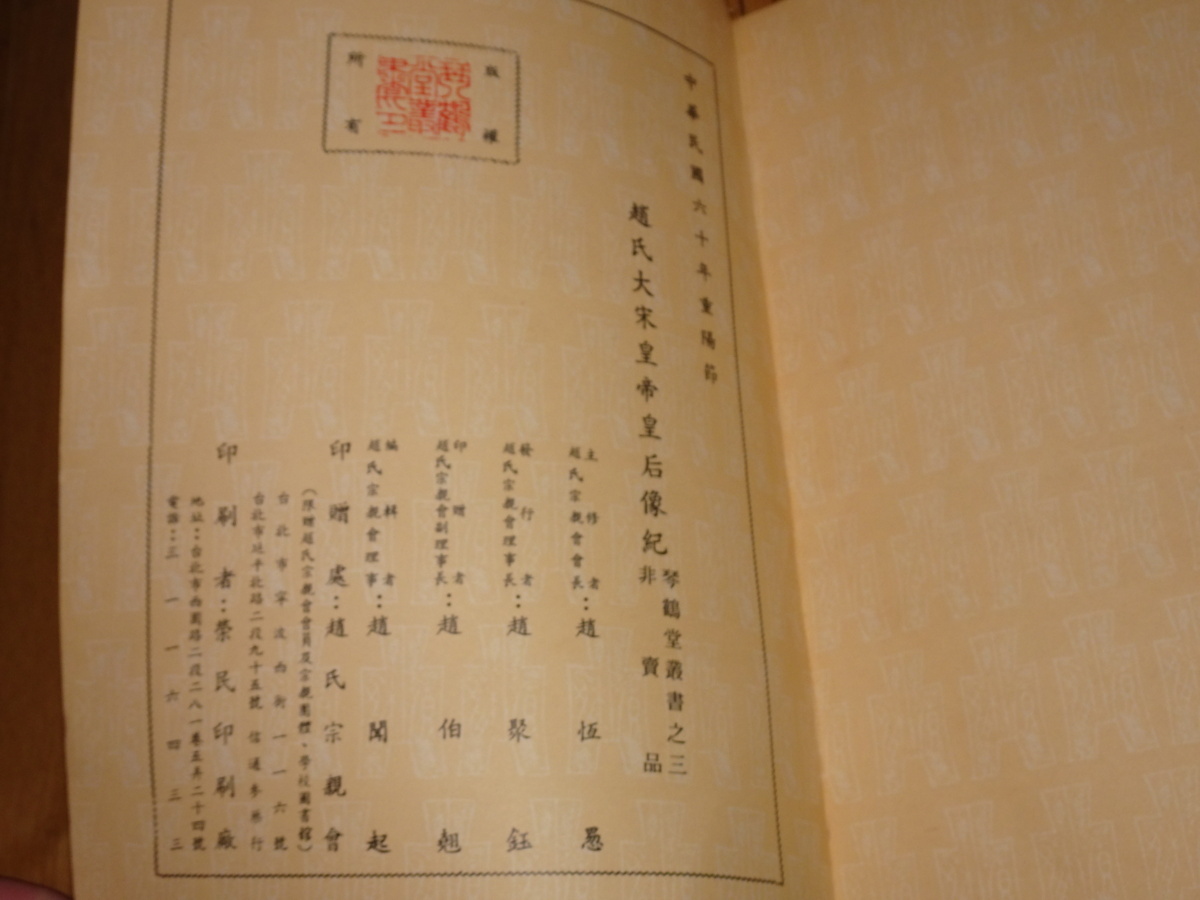 中華民國六十年重陽節
趙氏大宋皇帝皇后像紀
琴鶴堂叢書之三
非賣品
主修者
趙氏宗親會會長：趙恆惖
發行者
趙氏宗親會理事長：趙聚鈺
印贈者
趙氏宗親會副理事長：趙伯翹
編輯者
趙氏宗親會理事：趙聞起
印贈處：趙氏宗親會
（限贈趙氏宗親會會員及宗親團體、學校圖書館）
台北市寧波西街一一六號
台北市延平北路二段九十五號 信通參藥行
印刷者：榮民印刷廠
地址：台北市西園路二段二八一巷五弄二十四號
電話：三一一六四三三
版權
所有